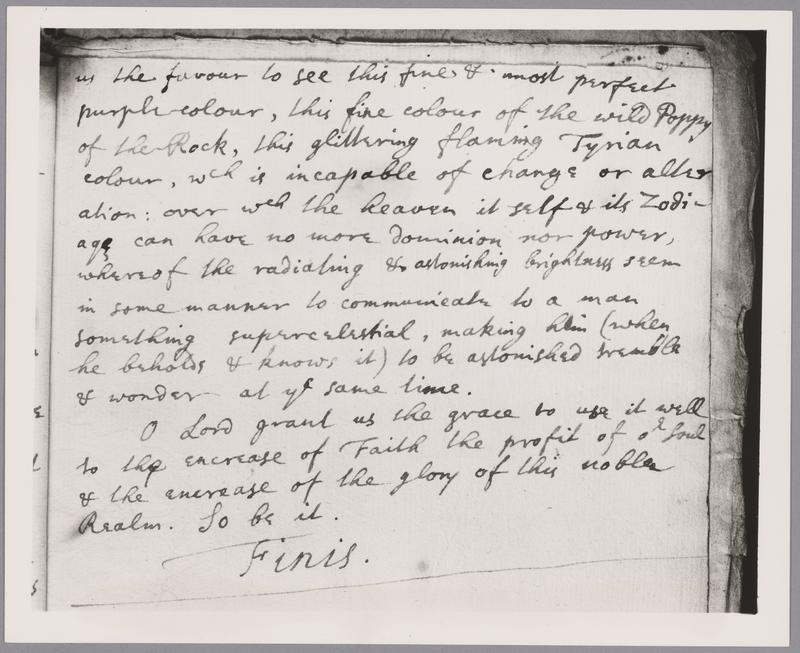 us the favour to see this fine & most perfect
purple-colour, this fine colour of the wild Poppy
of the Rock, this glittering flaming Tyrian
colour, wch is incapable of change or alter
ation: over wch the heaven it self & its Zodi-
aqe can have no more dominion nor power,
whereof the radiating & astonishing brightness seem
in some manner to communicate to a man
something supercelestial, making him (when
he beholds & knows it) to be astonished tremble
& wonder at ye same time.
O Lord grant us the grace to use it well
to the encrease of Faith the profit of or Soul
& the encrease of the glory of this noble
Realm. So be it.
Finis.